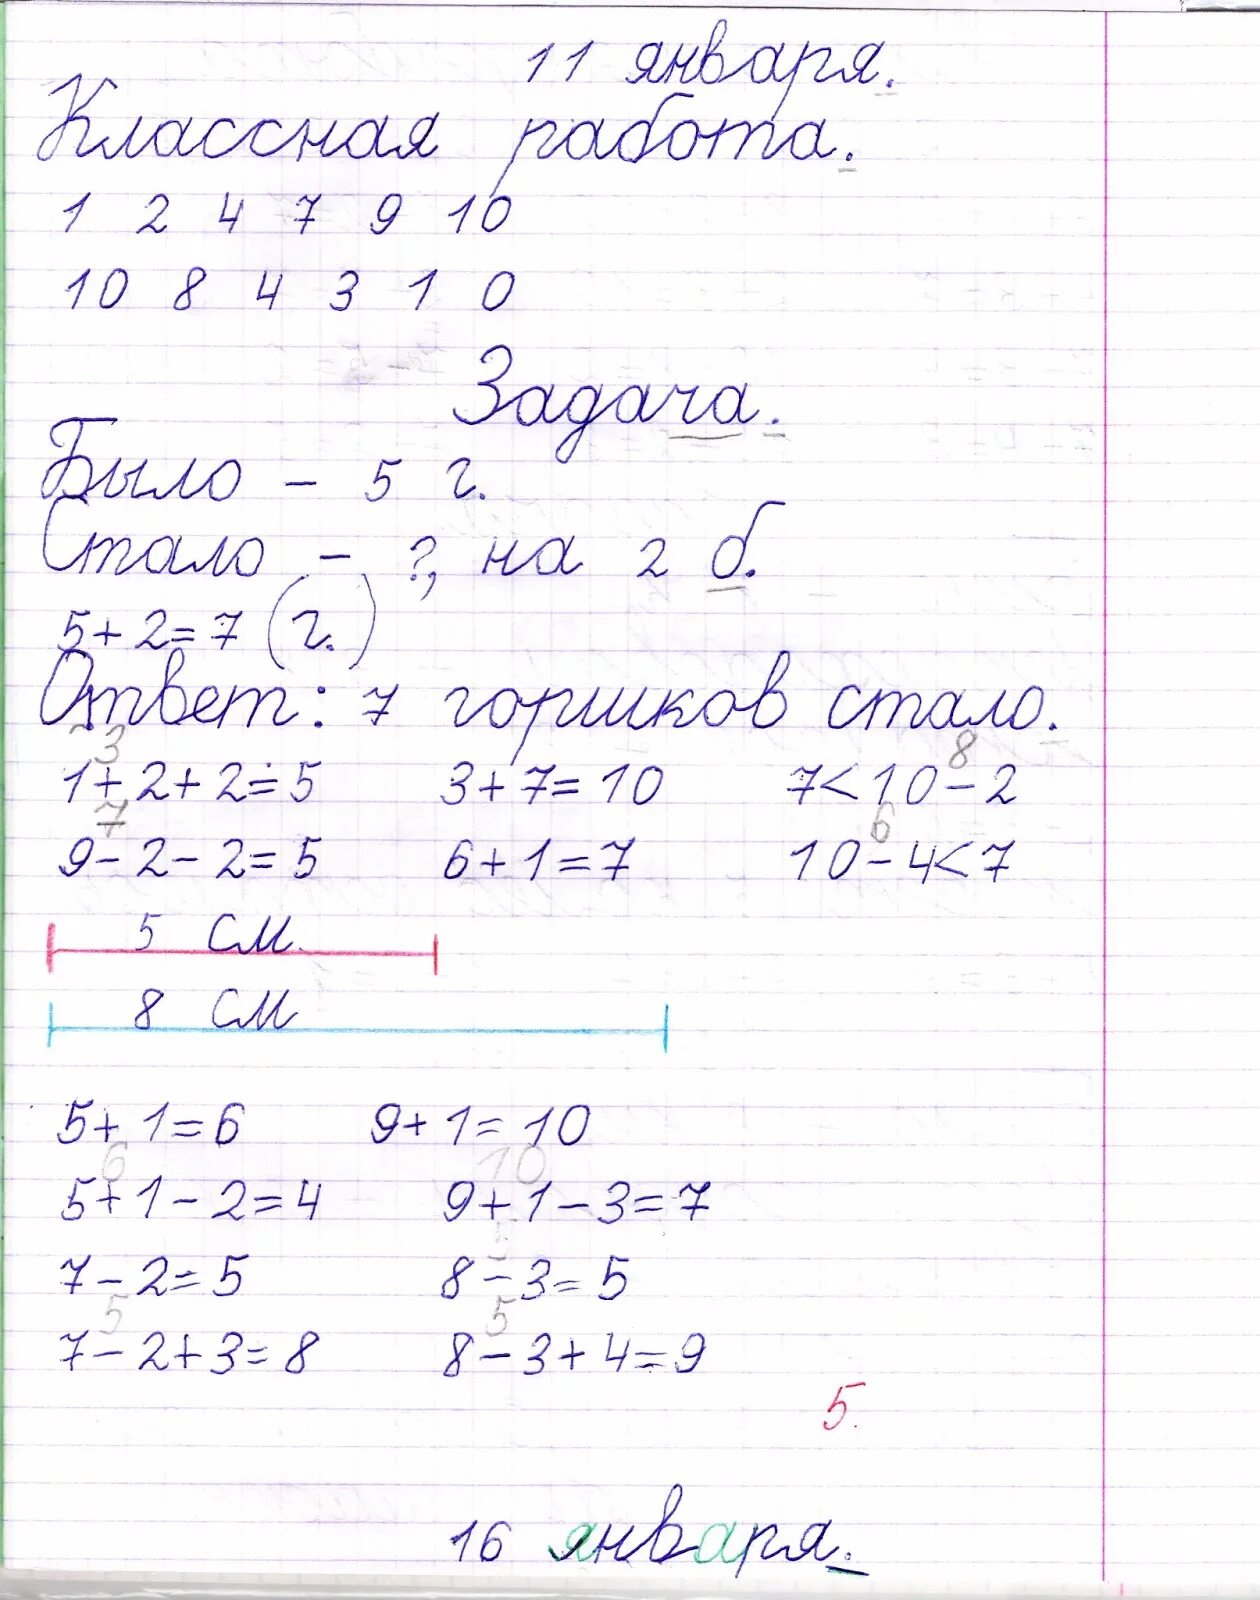 11 января.
Классная работа.
1 2 4 7 9 10
10 8 4 3 1 0
Задача.
Было - 5 г.
Стало - ?, на 2 б.
5+2=7 (г.)
Ответ: 7 горшков стало.
3 8
1+2+2=5 3+7=10 7<10-2
7 6
9-2-2=5 6+1=7 10-4<7
5 см
8 см
5+1=6 9+1=10
6 10
5+1-2=4 9+1-3=7
7-2=5 8-3=5
5 5
7-2+3=8 8-3+4=9
5.
16 января.